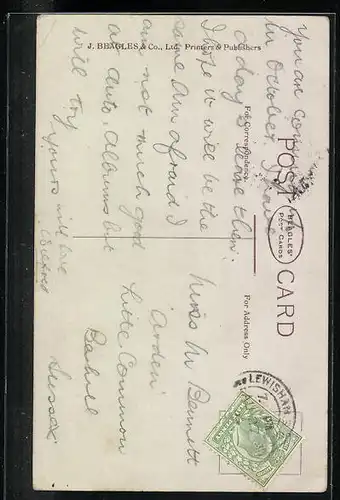 J. BEAGLES & Co., Ltd. Printers & Publishers
POST CARD
BEAGLES'
POST CARDS
For Correspondence.
For Address Only
You are coming
in October. I have
a days leave then.
I hope it will be the
same Am afraid I
am not much good
at Auto. Albums but
will try
yours with love
Miss M Bennett
"Arden"
Little Common
Bexhill
Sussex
LEWISHAM